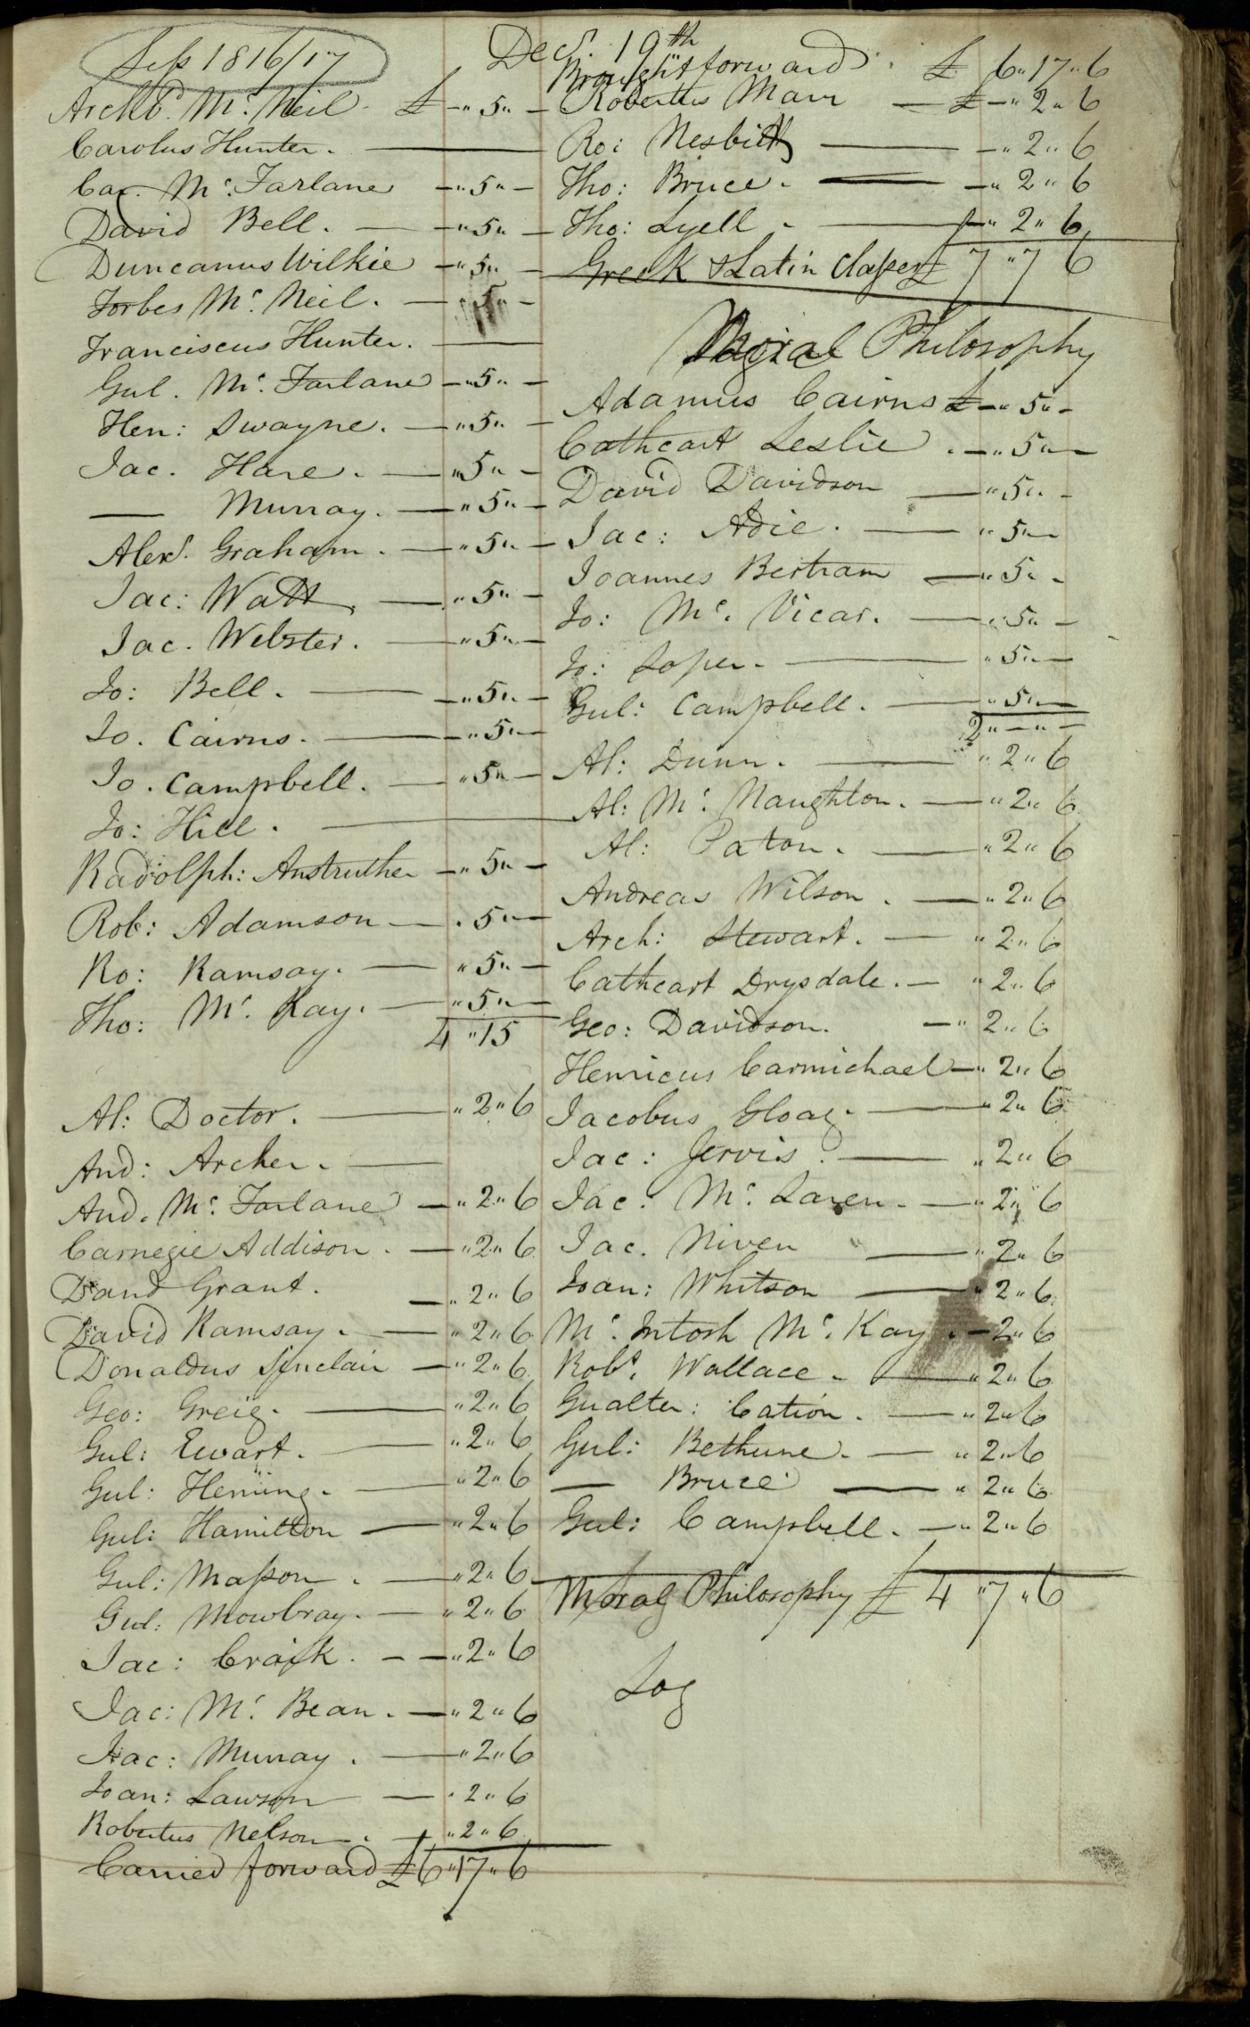 Sess 1816/17
Decr. 19th
Archd. Mc. Neil. £ -"5"-
Carolus Hunter.
Car. Mc. Farlane -"5"-
David Bell. -"5"-
Duncanus Wilkie -"5"-
Forbes Mc. Neil. "5"-
Franciscus Hunter.
Gul. Mc. Farlane -"5"-
Hen: Swayne. "5"-
Jac. Hare. "5"-
— Murray. "5"-
Alexr. Graham. "5"-
Jac: Watt. "5"-
Jac. Webster. "5"-
Jo: Bell. -"5"-
Jo. Cairns. -"5"-
Jo. Campbell. "5"-
Jo: Hill.
Radolph: Anstruther -"5"-
Rob: Adamson "5"-
Ro: Ramsay. "5"-
Tho: Mc. Kay. "5"-
4"15
Al: Doctor. "2"6
And: Archer.
And. Mc. Farlane "2"6
Carnegie Addison. "2"6
David Grant. "2"6
David Ramsay. "2"6
Donaldus Sinclair "2"6
Geo: Greig. "2"6
Gul: Ewart. "2"6
Gul: Heming. "2"6
Gul: Hamilton "2"6
Gul: Masson. "2"6
Gul: Mowbray. "2"6
Jac: Craik. "2"6
Jac: Mc. Bean. "2"6
Jac: Murray. "2"6
Joan: Lawson "2"6
Robertus Nelson. "2"6
Carried forward £6"17"6
Brought forward £ 6"17"6
Robertus Marr £-"2"6
Ro: Nesbitt -"2"6
Tho: Bruce. -"2"6
Tho: Lyell. "2"6
Greek & Latin Classes £ 7"7"6
Moral Philosophy
Adamus Cairns £-"5"-
Cathcart Leslie. -"5"-
David Davidson "5"-
Jac: Adie. "5"-
Joannes Bertram "5"-
Jo: Mc. Vicar. "5"-
Jo: Soper. "5"-
Gul: Campbell. "5"-
2"-"-
Al: Dunn. "2"6
Al: Mc. Naughton. "2"6
Al: Paton. "2"6
Andreas Wilson. "2"6
Arch: Stewart. "2"6
Cathcart Drysdale. "2"6
Geo: Davidson. "2"6
Henricus Carmichael "2"6
Jacobus Gloag. "2"6
Jac: Jervis. "2"6
Jac: Mc. Laren. "2"6
Jac. Niven "2"6
Joan: Whitson "2"6
Mc. Intosh Mc. Kay. -2"6
Robt. Wallace. "2"6
Gualter: Cation. "2"6
Gul: Bethune. "2"6
— Bruce "2"6
Gul: Campbell. "2"6
Moral Philosophy £ 4"7"6
Log